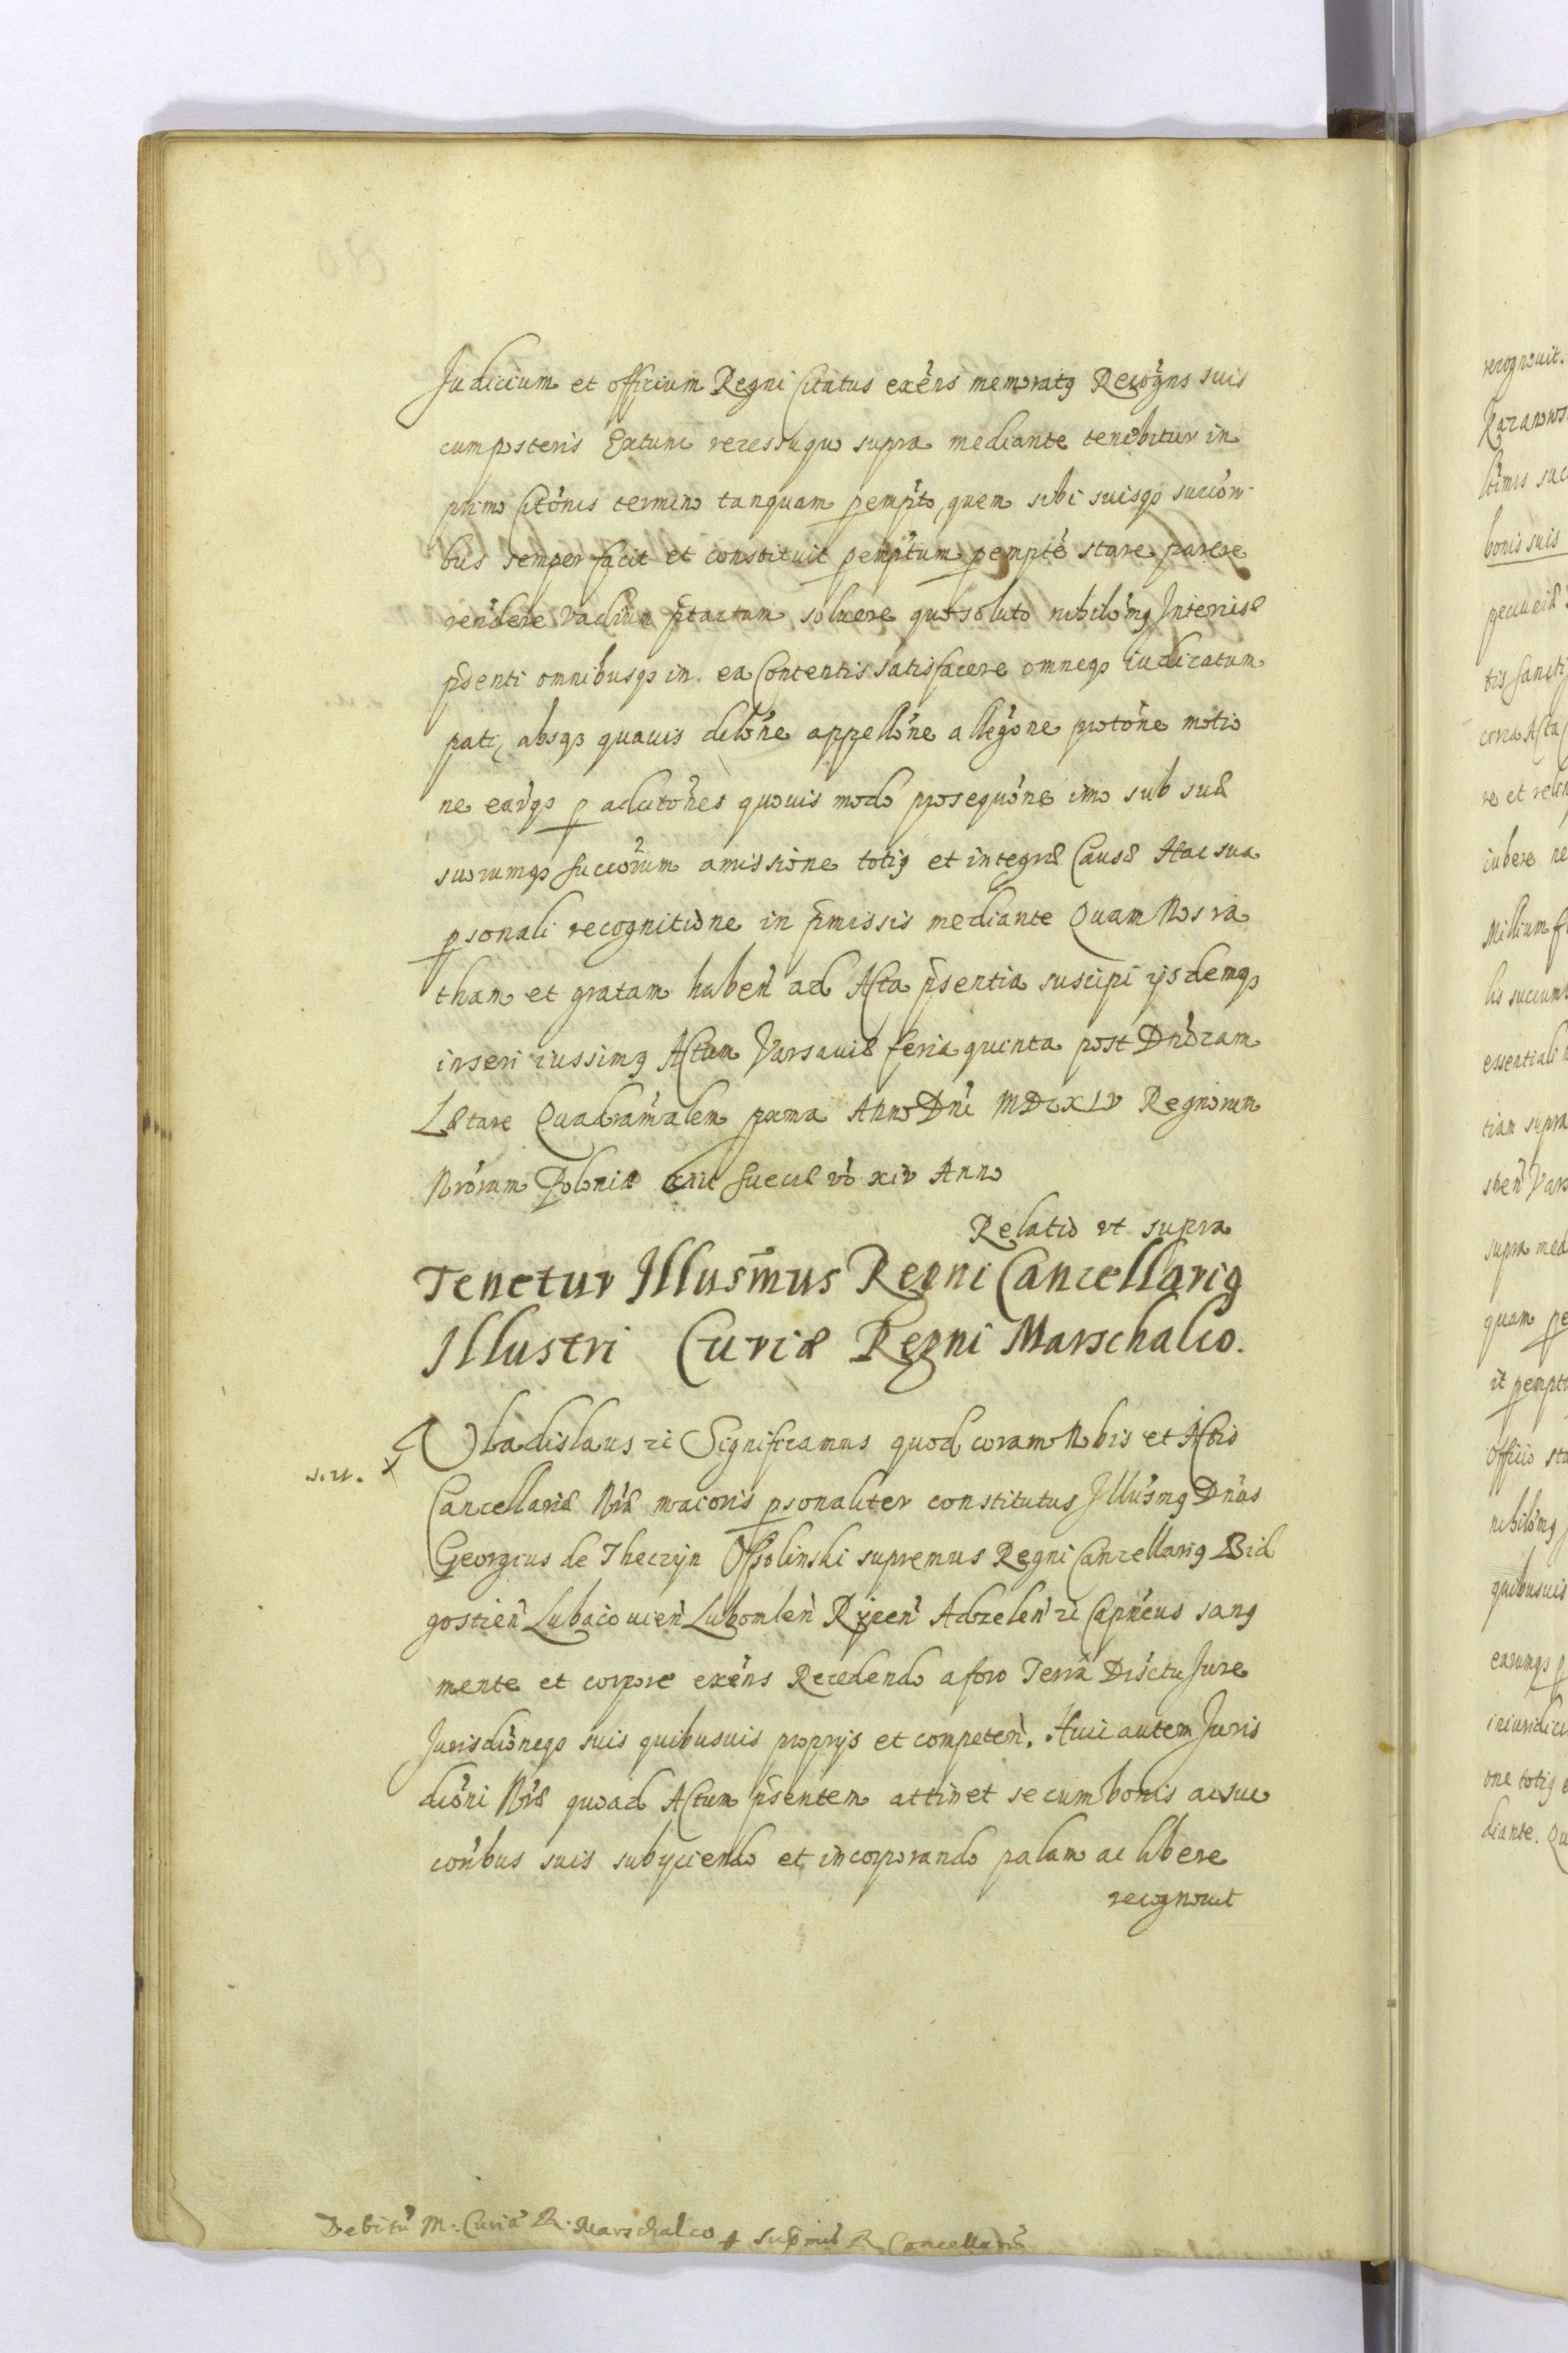 Judicium et officium Regni Citatus exẽns memoratꝯ Recõgns suis
cum posteris Extunc recessu quo supra mediante tenebitur in
primo Citõnis termino tanquam pempto, quem sibi suisqꝫ succor
bus semper facit et constituit pemptum pempte stare parere
rendere vadium ptactum soluere quo soluto nihilomꝯ Interisæ
psenti omnibusqꝫ in ea Contentis satisfacere omneqꝫ iudicatum
pati, absqꝫ quauis dilõne appellõne allegõne protõne motio
ne earqꝫ p adutões quouis modo prosequõne imo sub suæ
suorumqꝫ succorum amissione totiꝯ et integræ Causæ Hac sua
psonali recognitione in pmissis mediante Quam Nos ra
tham et gratam haben̄ ad Acta psentia suscipi ijsdemqꝫ
inseri iussimꝯ Actum Varsauiæ feria quinta post Dnicam
Lætare Quadramalem pxima Anno Dni MDCXLV Regnorum
Nrorum Poloniæ XIII Sueciæ vo XIV Anno
Relatio vt supra
Tenetur Illusm̃us Regni Cancellariꝯ
Illustri Curiæ Regni Marschalco.
Vladislaus zc Significamus quod coram Nobis et Actis
s.u.
Cancellariæ Nræ maioris psonaliter constitutus Illusmꝯ Dnus
Georgius de Theczyn Ossolinski supremus Regni Cancellariꝯ Bid
gostien̄ Lubaczouien̄ Lubomlen̄ Rycen̄ Adzelen̄ zc Capneus sanꝯ
mente et corpore exẽns Recedendo a foro Terra Disctu Jure
Jurisdiõneqꝫ suis quibusuis proprijs et competen̄. Huic autem Juris
diõni Nræ quoad Actum psentem attinet se cum bonis ac suc
coribus suis subyciendo et incorporando palam ac libere
recognouit
Debitũ M. Curiã R. Marschalco a Supmo R Cancellario
recognouit.
Kazanows
bonis suis
iubere ne
Millium f
essentiali
tiam supra
supra med
quam pe
Officio sta
quibusuis
one totiꝯ e
diante. Qu